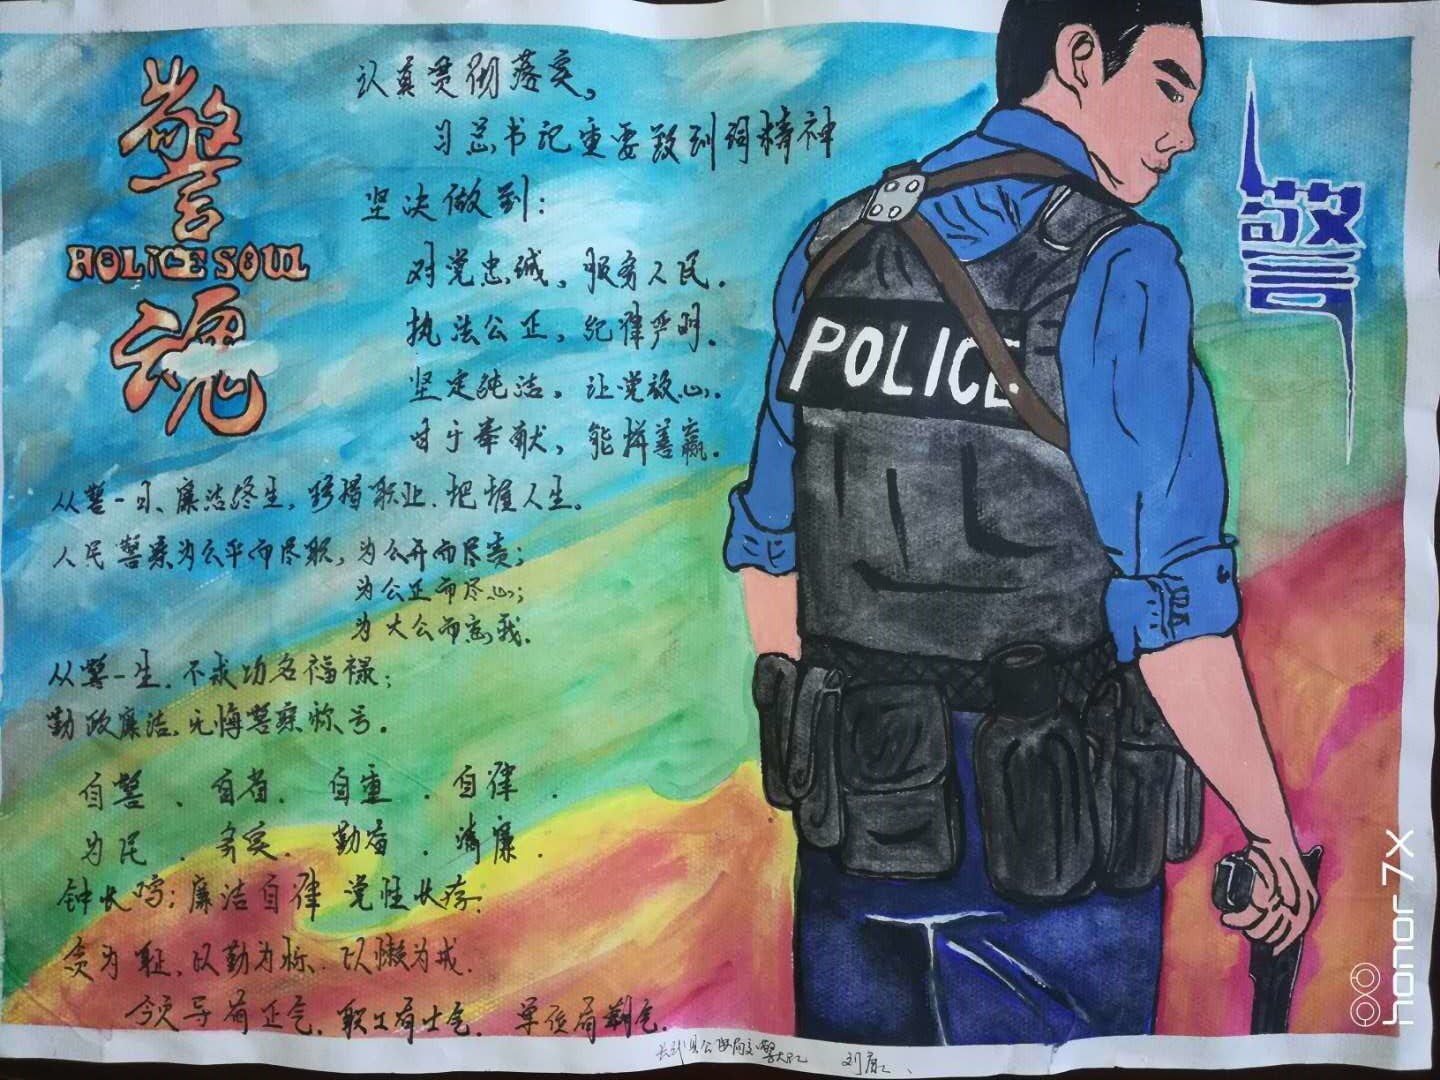 警
POLICE SOUL
魂
认真贯彻落实,
习总书记重要致训词精神
坚决做到:
对党忠诚。服务人民.
执法公正。纪律严明.
坚定纯洁。让党放心.
甘于奉献。能拼善赢.
从警一日、廉洁终生, 珍惜职业. 把握人生。
人民警察为公平而尽职, 为公开而尽责;
为公正而尽心;
为大公而忘我.
从警一生. 不求功名福禄;
勤政廉洁. 无悔警察称号。
自警 . 自省. 自重 . 自律 .
为民 . 务实. 勤奋 . 清廉 .
钟长鸣; 廉洁自律 党性长存.
贪为耻、以勤为标. 以懒为戒.
领导有正气. 职工有士气. 单位有朝气.
警
POLICE
县公安局交警大队 刘
honor 7X